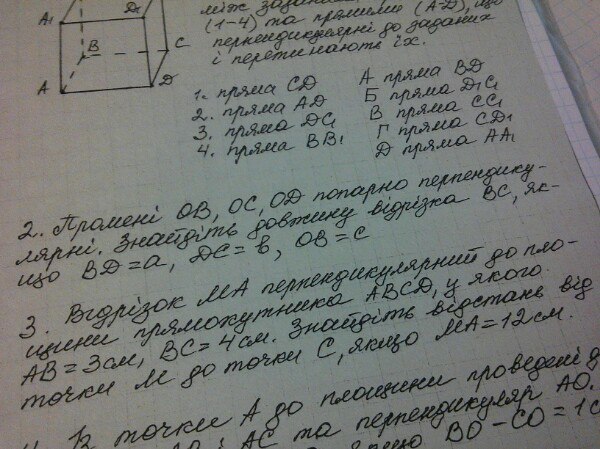 між
(1-4) та прямими (А-Д), що
перпендикулярні до заданих
і перетинають їх.
A₁
D₁
B
C
A
D
1. пряма CD
А пряма BD
2. пряма AD
Б пряма D₁C₁
3. пряма DC₁
В пряма CC₁
4. пряма BB₁
Г пряма CD₁
Д пряма AA₁
2. Промені OB, OC, OD попарно перпендику-
лярні. Знайдіть довжину відрізка BC, як-
що BD=a, DC=b, OB=c
3. Відрізок MA перпендикулярний до пло-
щини прямокутника ABCD, у якого
AB=3см, BC=4см. Знайдіть відстань від
точки M до точки C, якщо MA=12см.
З точки A до площини проведені
AC та перпендикуляр AO.
BO-CO=1